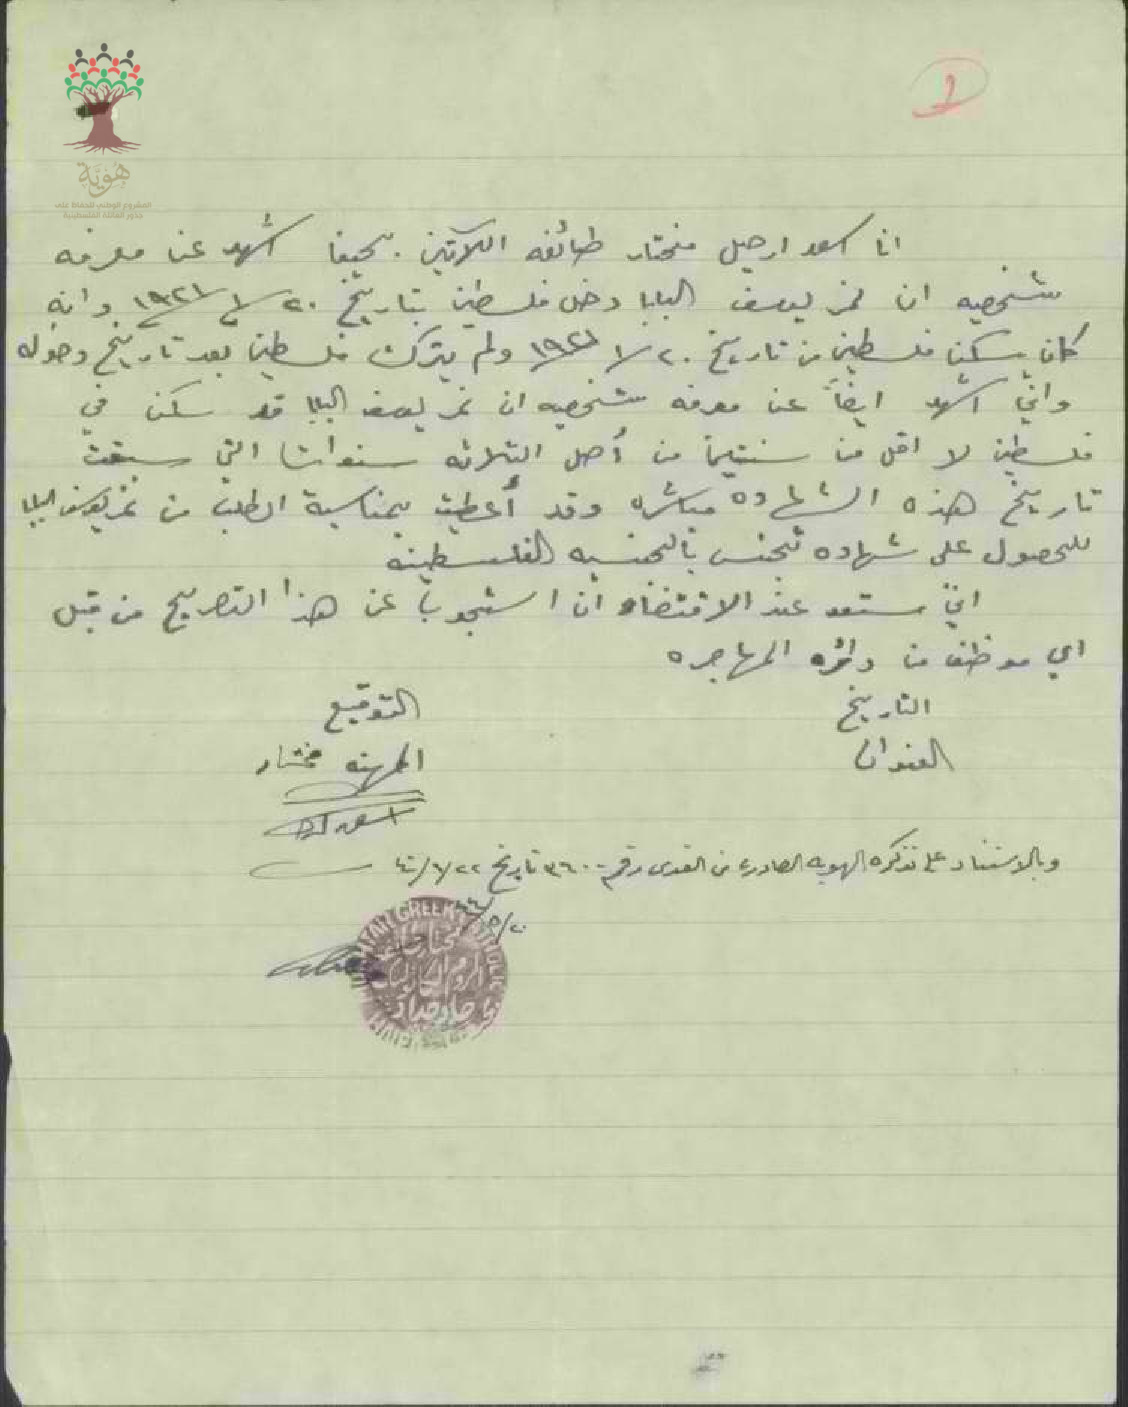 هوية
المشروع الوطني للحفاظ على
جذور العائلة الفلسطينية
انا اسعد ارحيل مختار طائفه اللاتين بحيفا اشهد عن معرفه
شخصيه ان نمر يوسف البابا دخل فلسطين بتاريخ ٢٠/١/١٩٢١ وانه
كان يسكن فلسطين من تاريخ ٢٠/١/١٩٢١ ولم يترك فلسطين بعد تاريخ وصوله
واني اشهد ايضاً عن معرفه شخصيه ان نمر يوسف البابا قد سكن في
فلسطين لا اقل من سنتين من أصل الثلاثه سنوات التي سبقت
تاريخ هذه الشهاده مباشره وقد أعطيت بمناسبة الطلب من نمر يوسف البابا
للحصول على شهاده تجنس بالجنسيه الفلسطينيه
اني مستعد عند الاقتضاء ان استجوب عن هذا التصريح من قبل
اي موظف من دائره المهاجره
التاريخ التوقيع
العنوان المهنه مختار
وبالاستناد على تذكره الهويه الصادره من القدس رقم ٣٦٠٠ تاريخ
GREEK CATHOLIC
الروم الكاثوليك
حداد